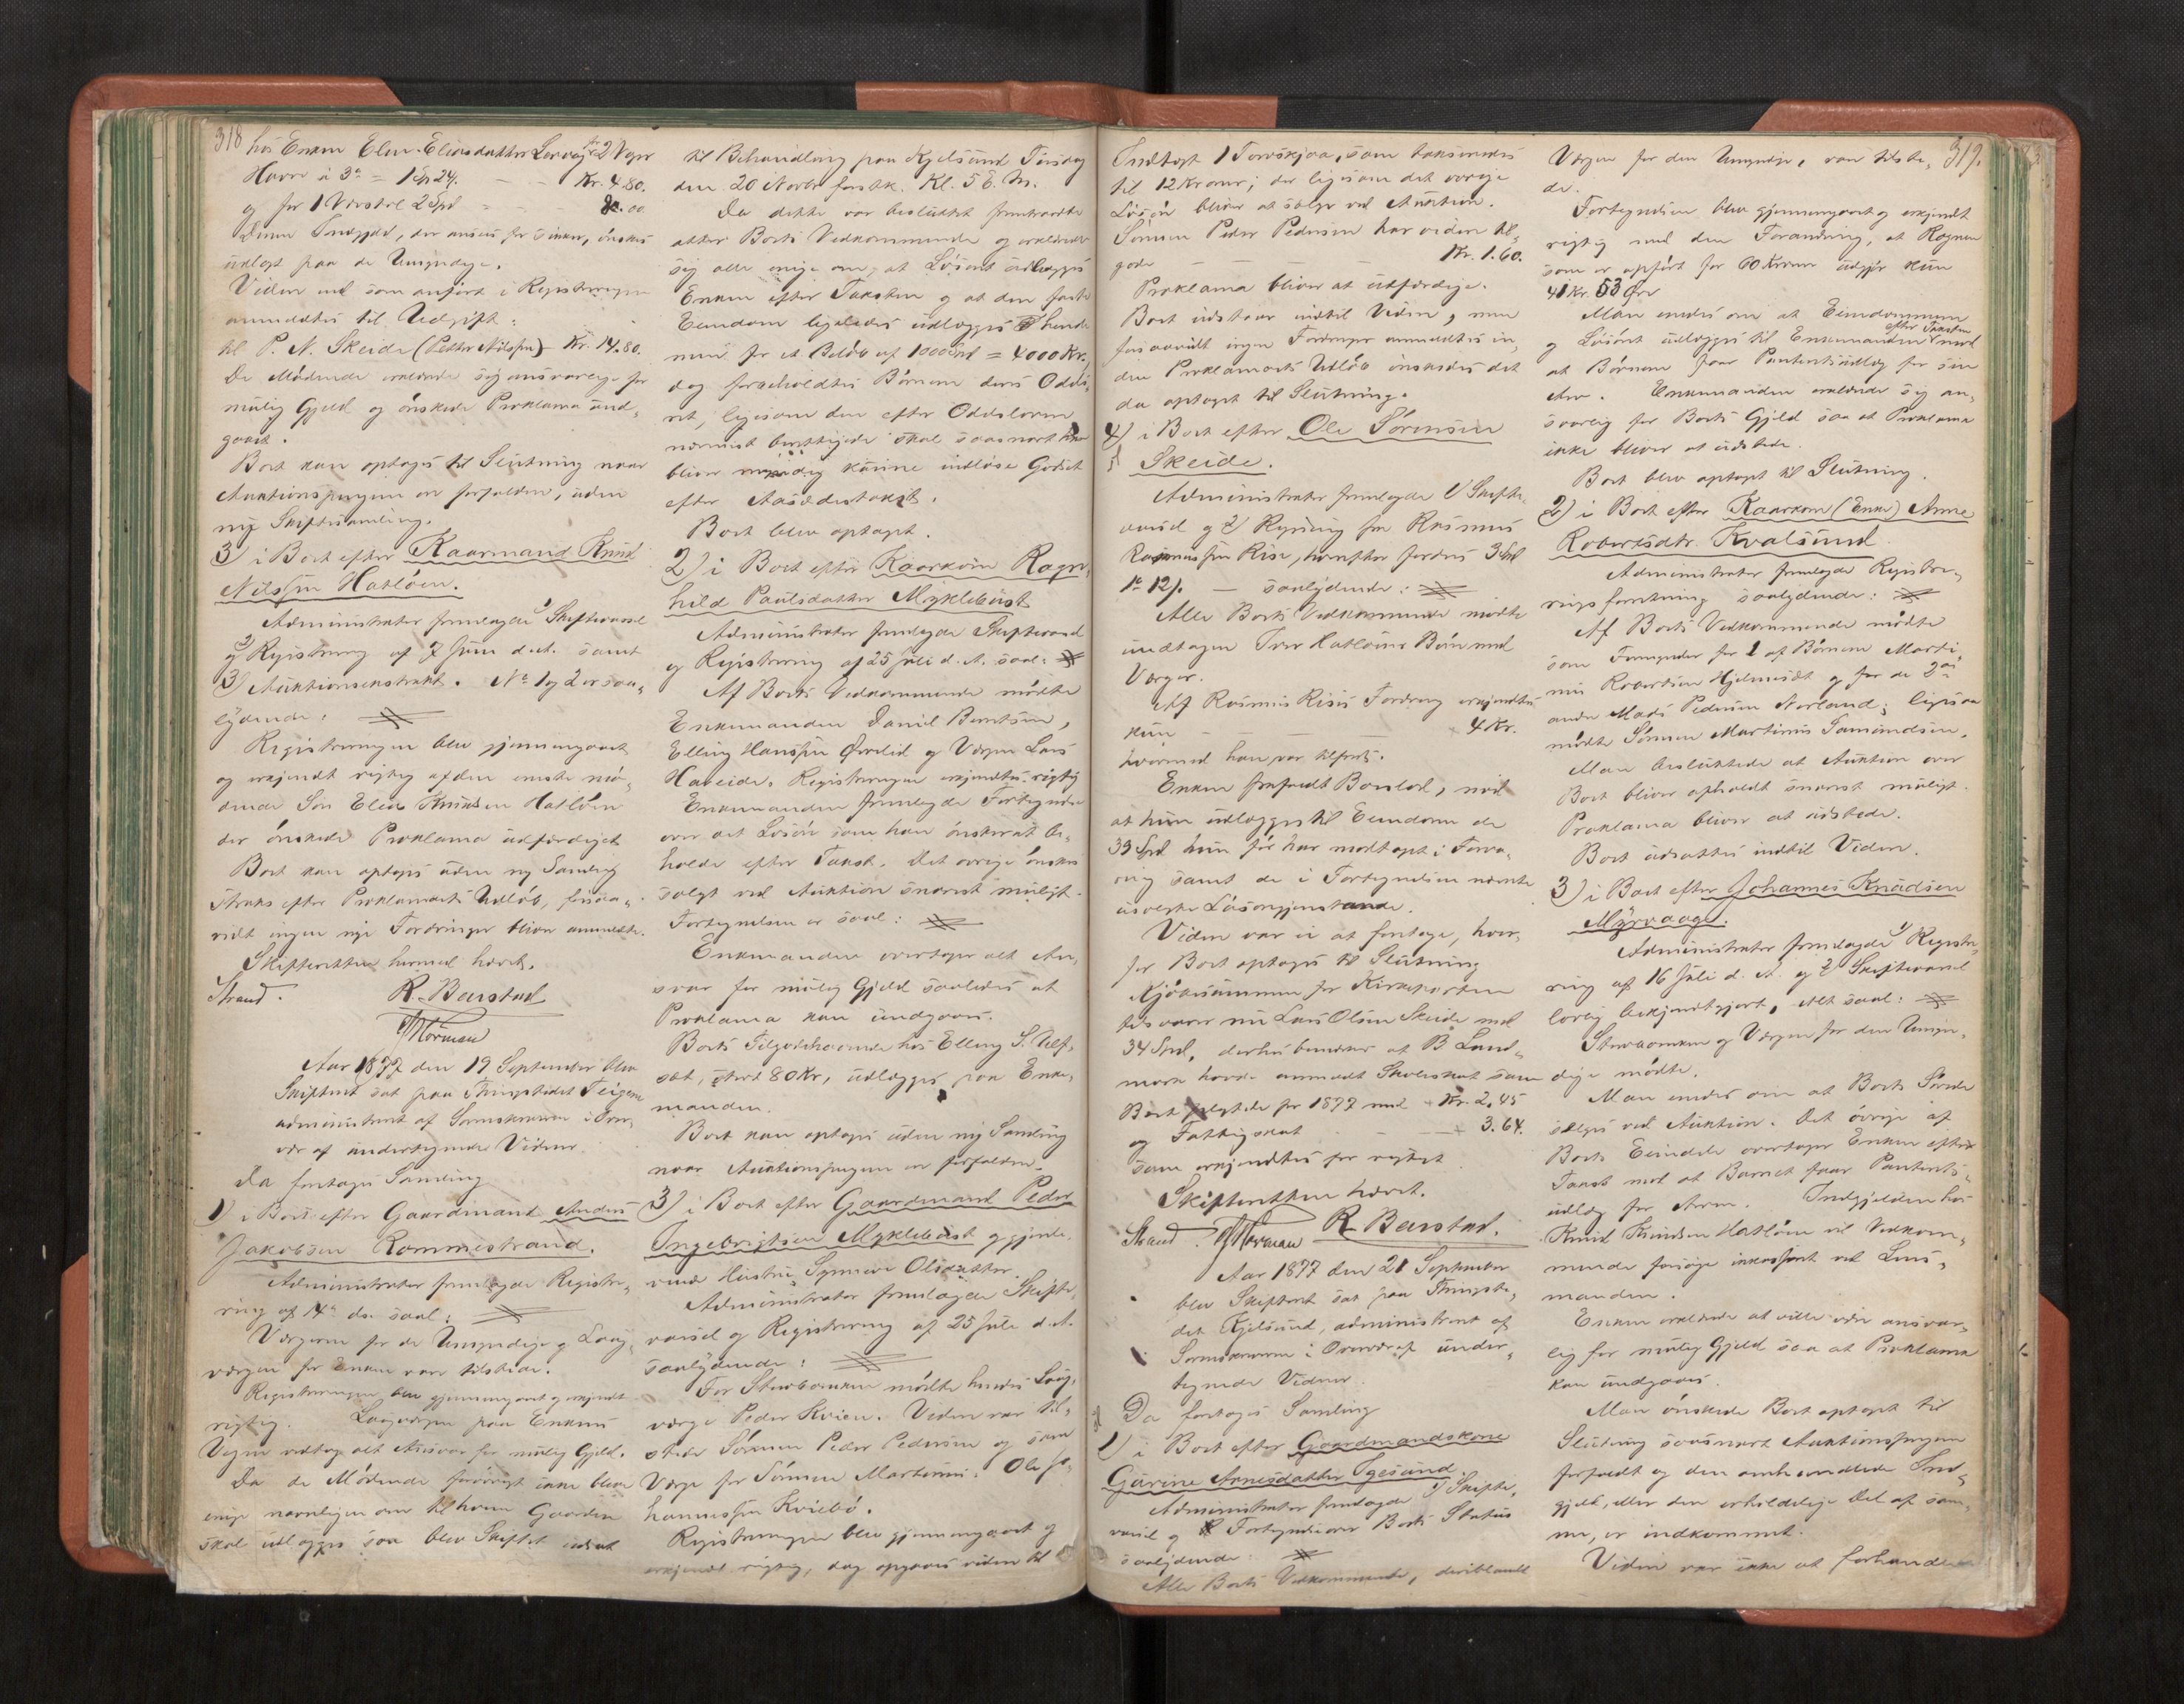 318
hos Enken Eline Eliasdatter Lervaag for 2 Voger
Havre à 3 = 1 Spd 24. — Kr. 4.80.
og for 1 Vævstol 2 Spd — 8.00
Denne Indgjeld, der ansees for sikker, ønskes
udlagt paa de Umyndige.
Viden end som anført i Registreringen
anmeldtes til Udgift:
til P. N. Skeide (Petter Nilssen) Kr. 14.80.
De Mødende erklærede sig ansvarlige for
mulig Gjeld og ønskede Proklama und-
gaaet.
Boet kan optages til Slutning naar
Auktionspengene er forfaldne, uden
ny Skiftesamling.
3) i Boet efter Kaarmand Knud
Nilssen Hatløen.
Administrator fremlagde 1) Skiftevarsel
2) Registrering af 7 Juni d. A. samt
3) Auktionsekstrakt. No 1 og 2 er saa-
lydende:
Registreringen blev gjennemgaaet
og erkjendt rigtig af den eneste mø-
dende Søn Elias Knudsen Hatløen
der ønskede Proklama udfærdiget
Boet kan optages uden ny Samling
straks efter Proklamaets Udløb, forsaa-
vidt ingen nye Fordringer bliver anmeldte.
Skifteretten hermed hævet.
Strand. R. Barstad
Mørman
Aar 1877 den 19 September blev
Skifteret sat paa Thingstedet Teigene
administreret af Sorenskriveren i Over-
vær af undertegnede Vidner.
Da foretages Samling
1) i Boet efter Gaardmand Anders
Jakobsen Rommestrand.
Administrator fremlagde Registre-
ring af 14de ds. saal:
Værgerne for de Umyndige og Laug-
værgen for Enken var tilstede.
Registreringen blev gjennemgaaet og erkjendt
rigtig. Laugværgen paa Enkens
Vegne vedtog alt Ansvar for mulig Gjeld.
Da de Mødende forøvrigt ikke blev
enige navnligen om til hvem Gaarden
skal udlægges saa blev Skiftet udsat
til Behandling paa Kjelsund Tirsdag
den 20 Novbr førstk. Kl. 5 E. M.
Da dette var besluttet fremtraadte
atter Boets Vedkommende og erklærede
sig alle enige om, at Løsøret udlægges
Enken efter Taksten og at den faste
Eiendom ligeledes udlægges hende
men for et Beløb af 1000 Spd = 4000 Kr.
dog forbeholdtes Børnene deres Odels-
ret, ligesom den efter Odelsloven
nærmest berettigede skal saasnart han
bliver myndig kunne indløse Godset
efter Aasædestakst.
Boet blev optaget.
2) i Boet efter Kaarkone Ragn-
hild Paulsdatter Myklebust
Administrator fremlagde Skiftevarsel
og Registrering af 25 Juli d. A. saal:
Af Boets Vedkommende mødte
Enkemanden Daniel Berntsen,
Elling Hanssen Ørelid og Værgen Lars
Hareide. Registreringen erkjendtes rigtig
Enkemanden fremlagde Fortegnelse
over det Løsøre som han ønsker at be-
holde efter Takst. Det øvrige ønskes
solgt ved Auktion snarest muligt.
Fortegnelsen er saal:
Enkemanden overtager alt An-
svar for mulig Gjeld saaledes at
Proklama kan undgaaes.
Boets Tilgodehavende hos Elling S. Ulf-
sæt, stort 80 Kr, udlægges paa Enke-
manden.
Boet kan optages uden ny Samling
naar Auktionspengene er forfaldne.
3) i Boet efter Gaardmand Peder
Ingebrigtsen Myklebust og gjenle-
vende Hustru Synneve Olsdatter.
Administrator fremlagde Skifte-
varsel og Registrering af 25 Juli d. A.
saalydende:
For Sterboenken mødte hendes Laug-
værge Peder Kvien. Viden var til-
stede Sønnen Peder Pedersen og som
Værge for Sønnen Martinus: Ole Jo-
hannessen Kvilbø.
Registreringen blev gjennemgaaet og
erkjendt rigtig, dog opgaves viden til
319.
Indtægt 1 Torvskjaa, som taksteredes
til 12 Kroner; der ligesom det øvrige
Løsøre bliver at sælge ved Auktion.
Sønnen Peder Pedersen har viden til-
gode — Kr. 1.60.
Proklama bliver at udfærdige.
Boet udstaar indtil Viden, men
forsaavidt ingen Fordringer anmeldtes in-
den Proklamaets Udløb ønskedes det
da optaget til Slutning.
4) i Boet efter Ole Sørensen
Skeide.
Administrator fremlagde 1) Skifte-
varsel og 2) Regning fra Rasmus
Rasmussen Rise, hvorefter fordres 3 Spd
1 12 — saalydende:
Alle Boets Vedkommende mødte
undtagen Iver Hatløens Børn med
Værger.
Af Rasmus Rises Fordring erkjendtes
kun — 4 Kr.
hvormed han var tilfreds.
Enken frafaldt Boeslod, mod
at hun udlægges til Eiendom de
39 Spd hun før har modtaget i Forva-
ring samt de i Fortegnelsen nævnte
usolgte Løsøregjenstande.
Viden var ei at foretage, hvor-
for Boet optages til Slutning
Kjøbesummen for Kirkeparten
tilsvarer nu Lars Olsen Skeide med
34 Spd, derhos bemærkes at B Land-
mark havde anmeldt Skoleskat som
Boet for 1877 med Kr. 2,45
og Fattigskat — 3.64.
som erkjendtes for rigtigt
Skifteretten hævet.
Strand. Mørman R. Barstad.
Aar 1877 den 21 September
blev Skifteret sat paa Thingste-
det Kjelsund, administreret af
Sorenskriveren i Overvær af under-
tegnede Vidner.
Da foretages Samling
1) i Boet efter Gaardmandskone
Gurine Arnesdatter Igesund.
Administrator fremlagde 1) Skifte-
varsel og 2) Fortegnelse over Boets Status
saalydende:
Alle Boets Vedkommende, deriblandt
Værgen for den Umyndige, var tilste-
de.
Fortegnelsen blev gjennemgaaet og erkjendt
rigtig med den Forandring, at Rognen
som er opført for 60 Kroner udgjør kun
41 Kr. 53 Øre
Man enedes om at Eiendommen
og Løsøret udlægges til Enkemanden efter Taxten mod
at Børnene faar Panteretsudlæg for sin
Arv. Enkemanden erklærede sig an-
svarlig for Boets Gjeld saa at Proklama
ikke bliver at udstede.
Boet blev optaget til Slutning.
2) i Boet efter Kaarkone (Enke) Anne
Robertsdtr. Kvalsund
Administrator fremlagde Registre-
ringsforretning saalydende:
Af Boets Vedkommende mødte
som Formynder for 1 af Børnene Marti-
nus Robertsen Hjelmeset og for de 2de
andre Mads Pedersen Norland; ligesaa
mødte Sønnen Martinus Samundsen.
Man besluttede at Auktion over
Boet bliver afholdt snarest muligt.
Proklama bliver at udstede.
Boet udsattes indtil Viden.
3) i Boet efter Johannes Knudsen
Myrvaage.
Administrator fremlagde 1) Registre-
ring af 16 Juli d. A. og 2) Skiftevarsel
lovlig bekjendtgjort, Alt saal:
Sterboenken og Værgen for den Umyn-
dige mødte.
Man enedes om at Boets
sælges ved Auktion. Det øvrige af
Boets Eiendele overtager Enken efter
Takst mod at Barnet faar Panterets-
udlæg for Arven. Indgjelden hos
Knud Knudsen Hatløen vil Vedkom-
mende forsøge inkasseret ved Lens-
manden.
Enken erklærede at ville være ansvar-
lig for mulig Gjeld saa at Proklama
kan undgaaes.
Man ønskede Boet optaget til
Slutning saasnart Auktionspengene
forfaldt og den omhandlede Ind-
gjeld, eller den erholdelige Del af sam-
me, er indkommet.
Viden var ikke at forhandle